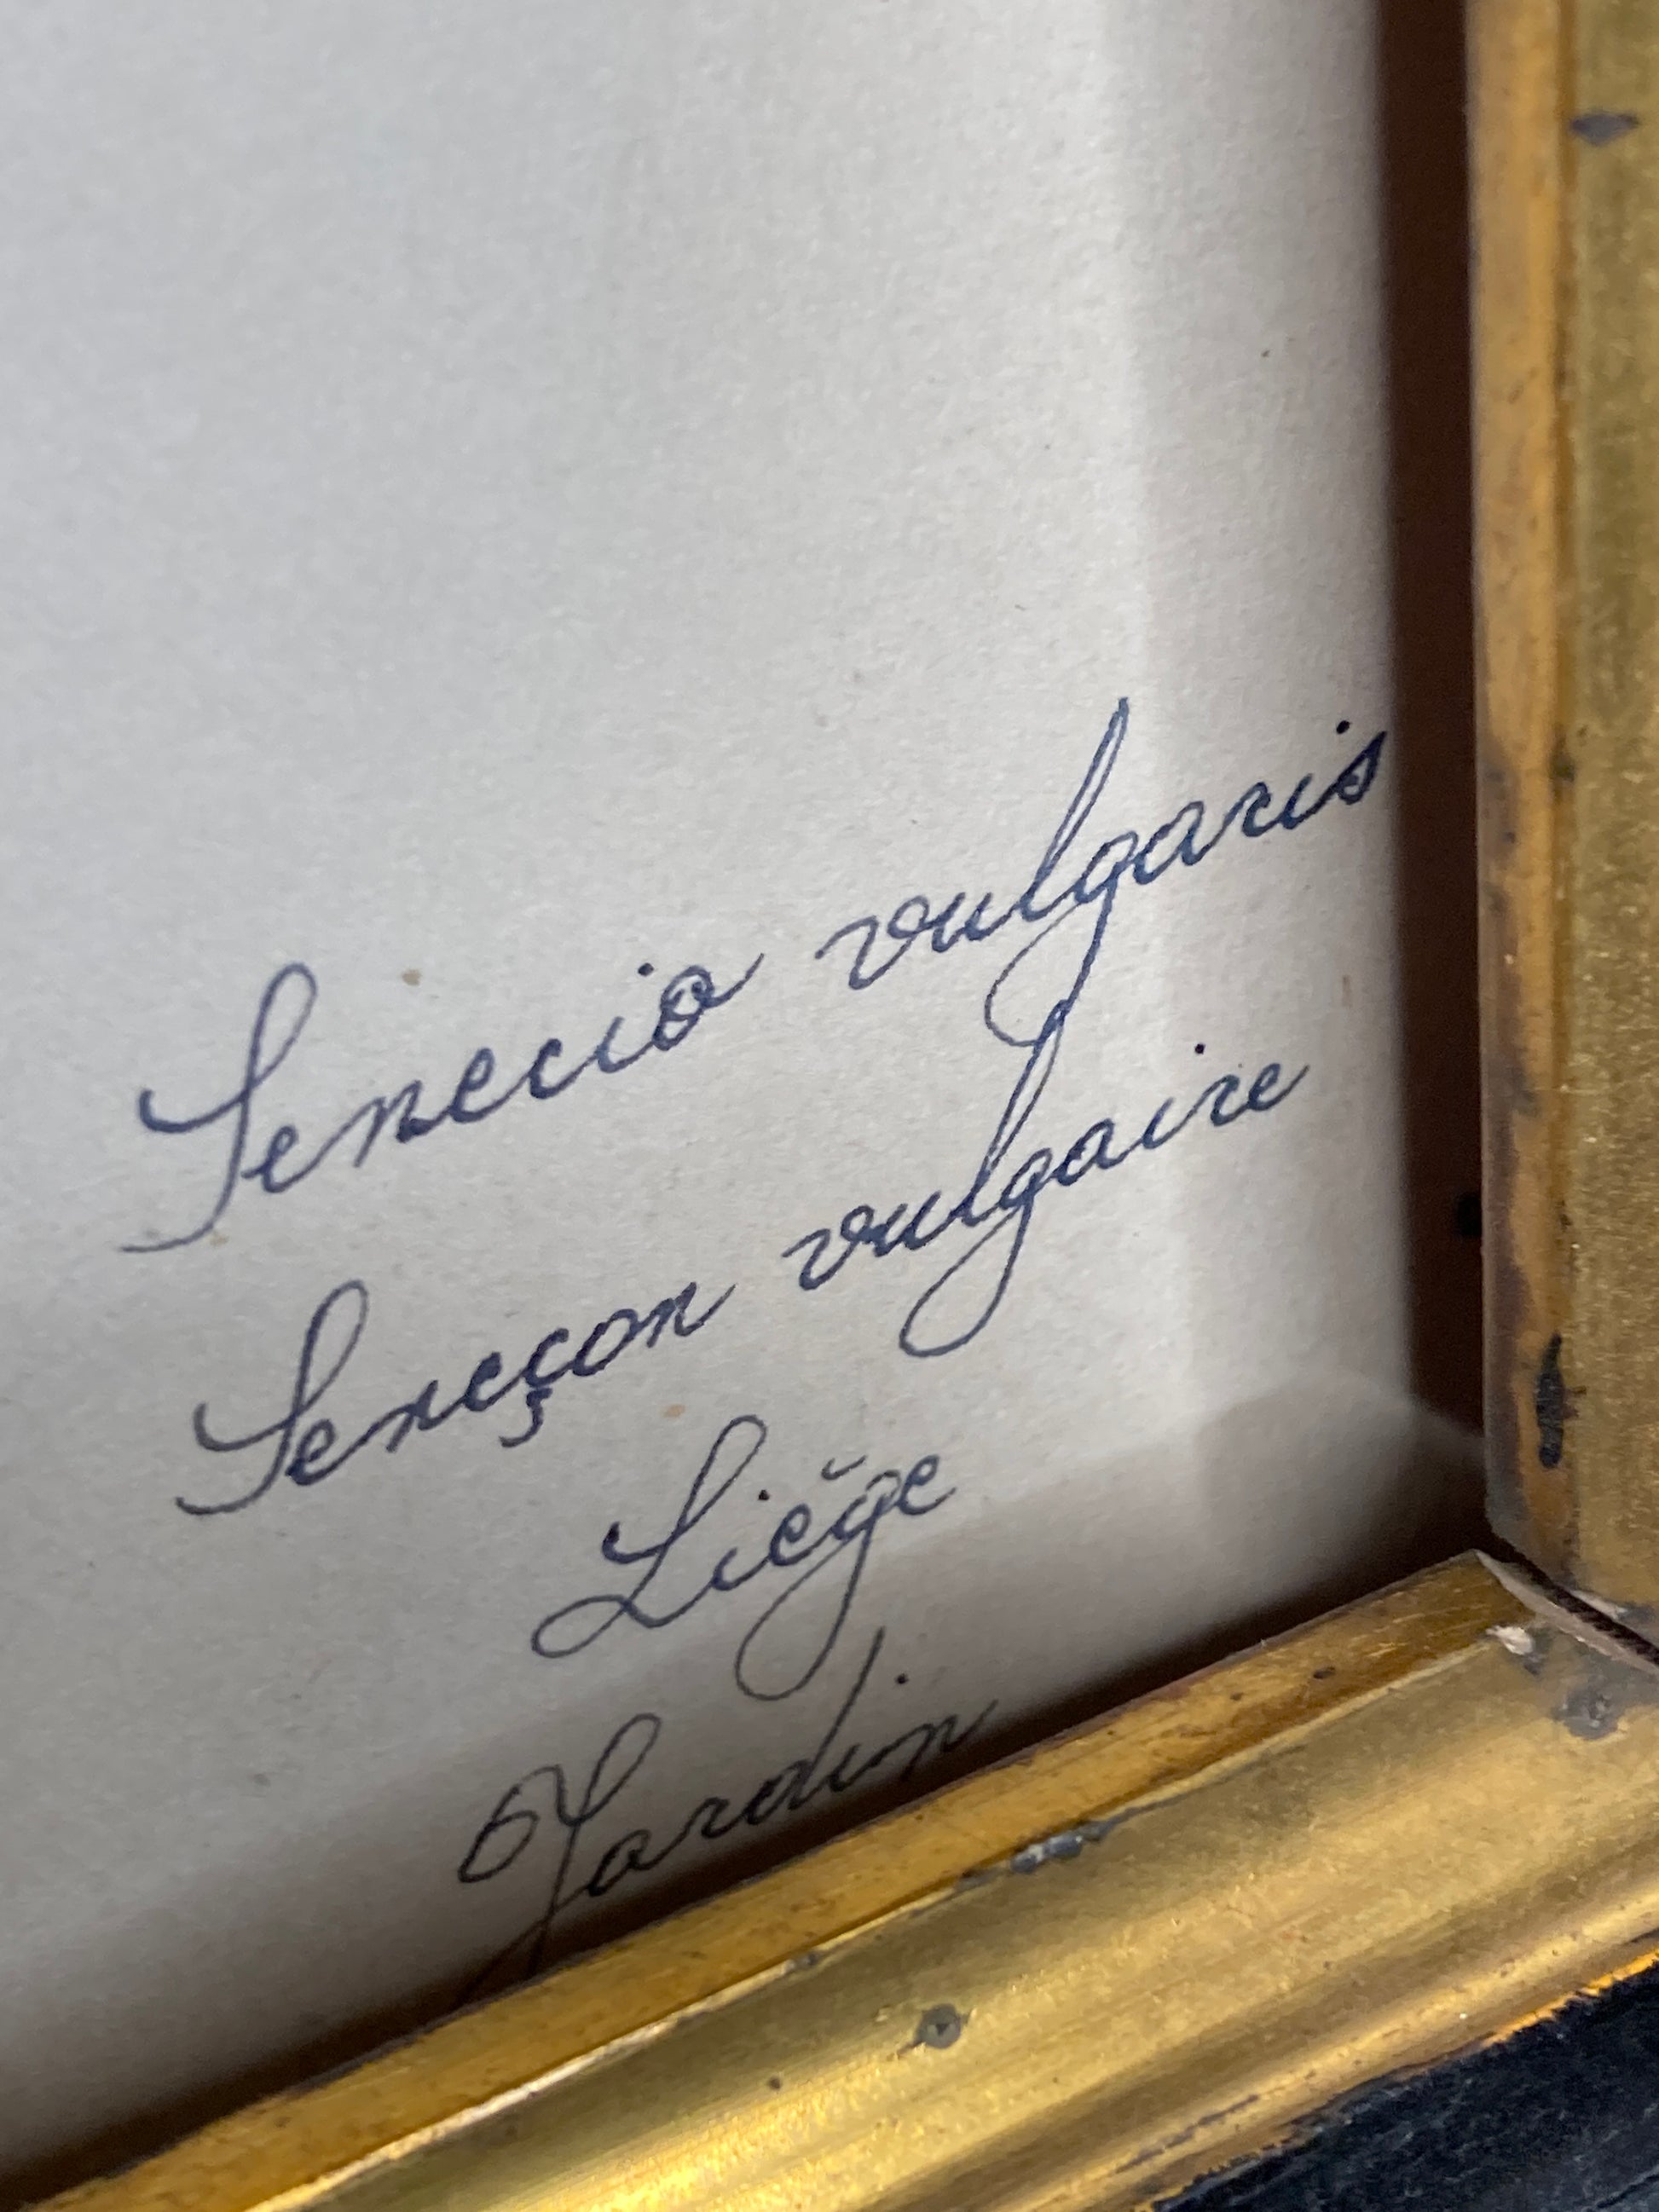 Senecio vulgaris
Seneçon vulgaire
Liège
Jardin